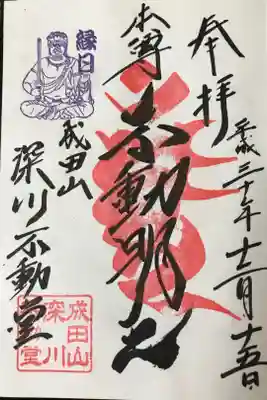 奉拝
平成三十年十二月十五日
本尊
不動明王
縁日
成田山
深川不動堂
成田山
深川
不動堂